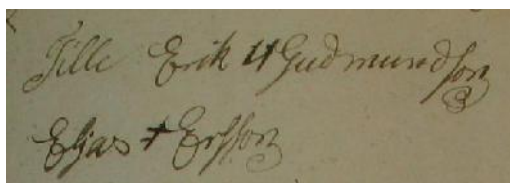 Jille Erik H Gudmundson
Elias + Ersson